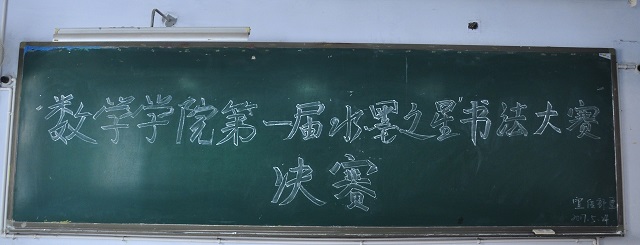 数学学院第一届"水墨之星"书法大赛
决赛